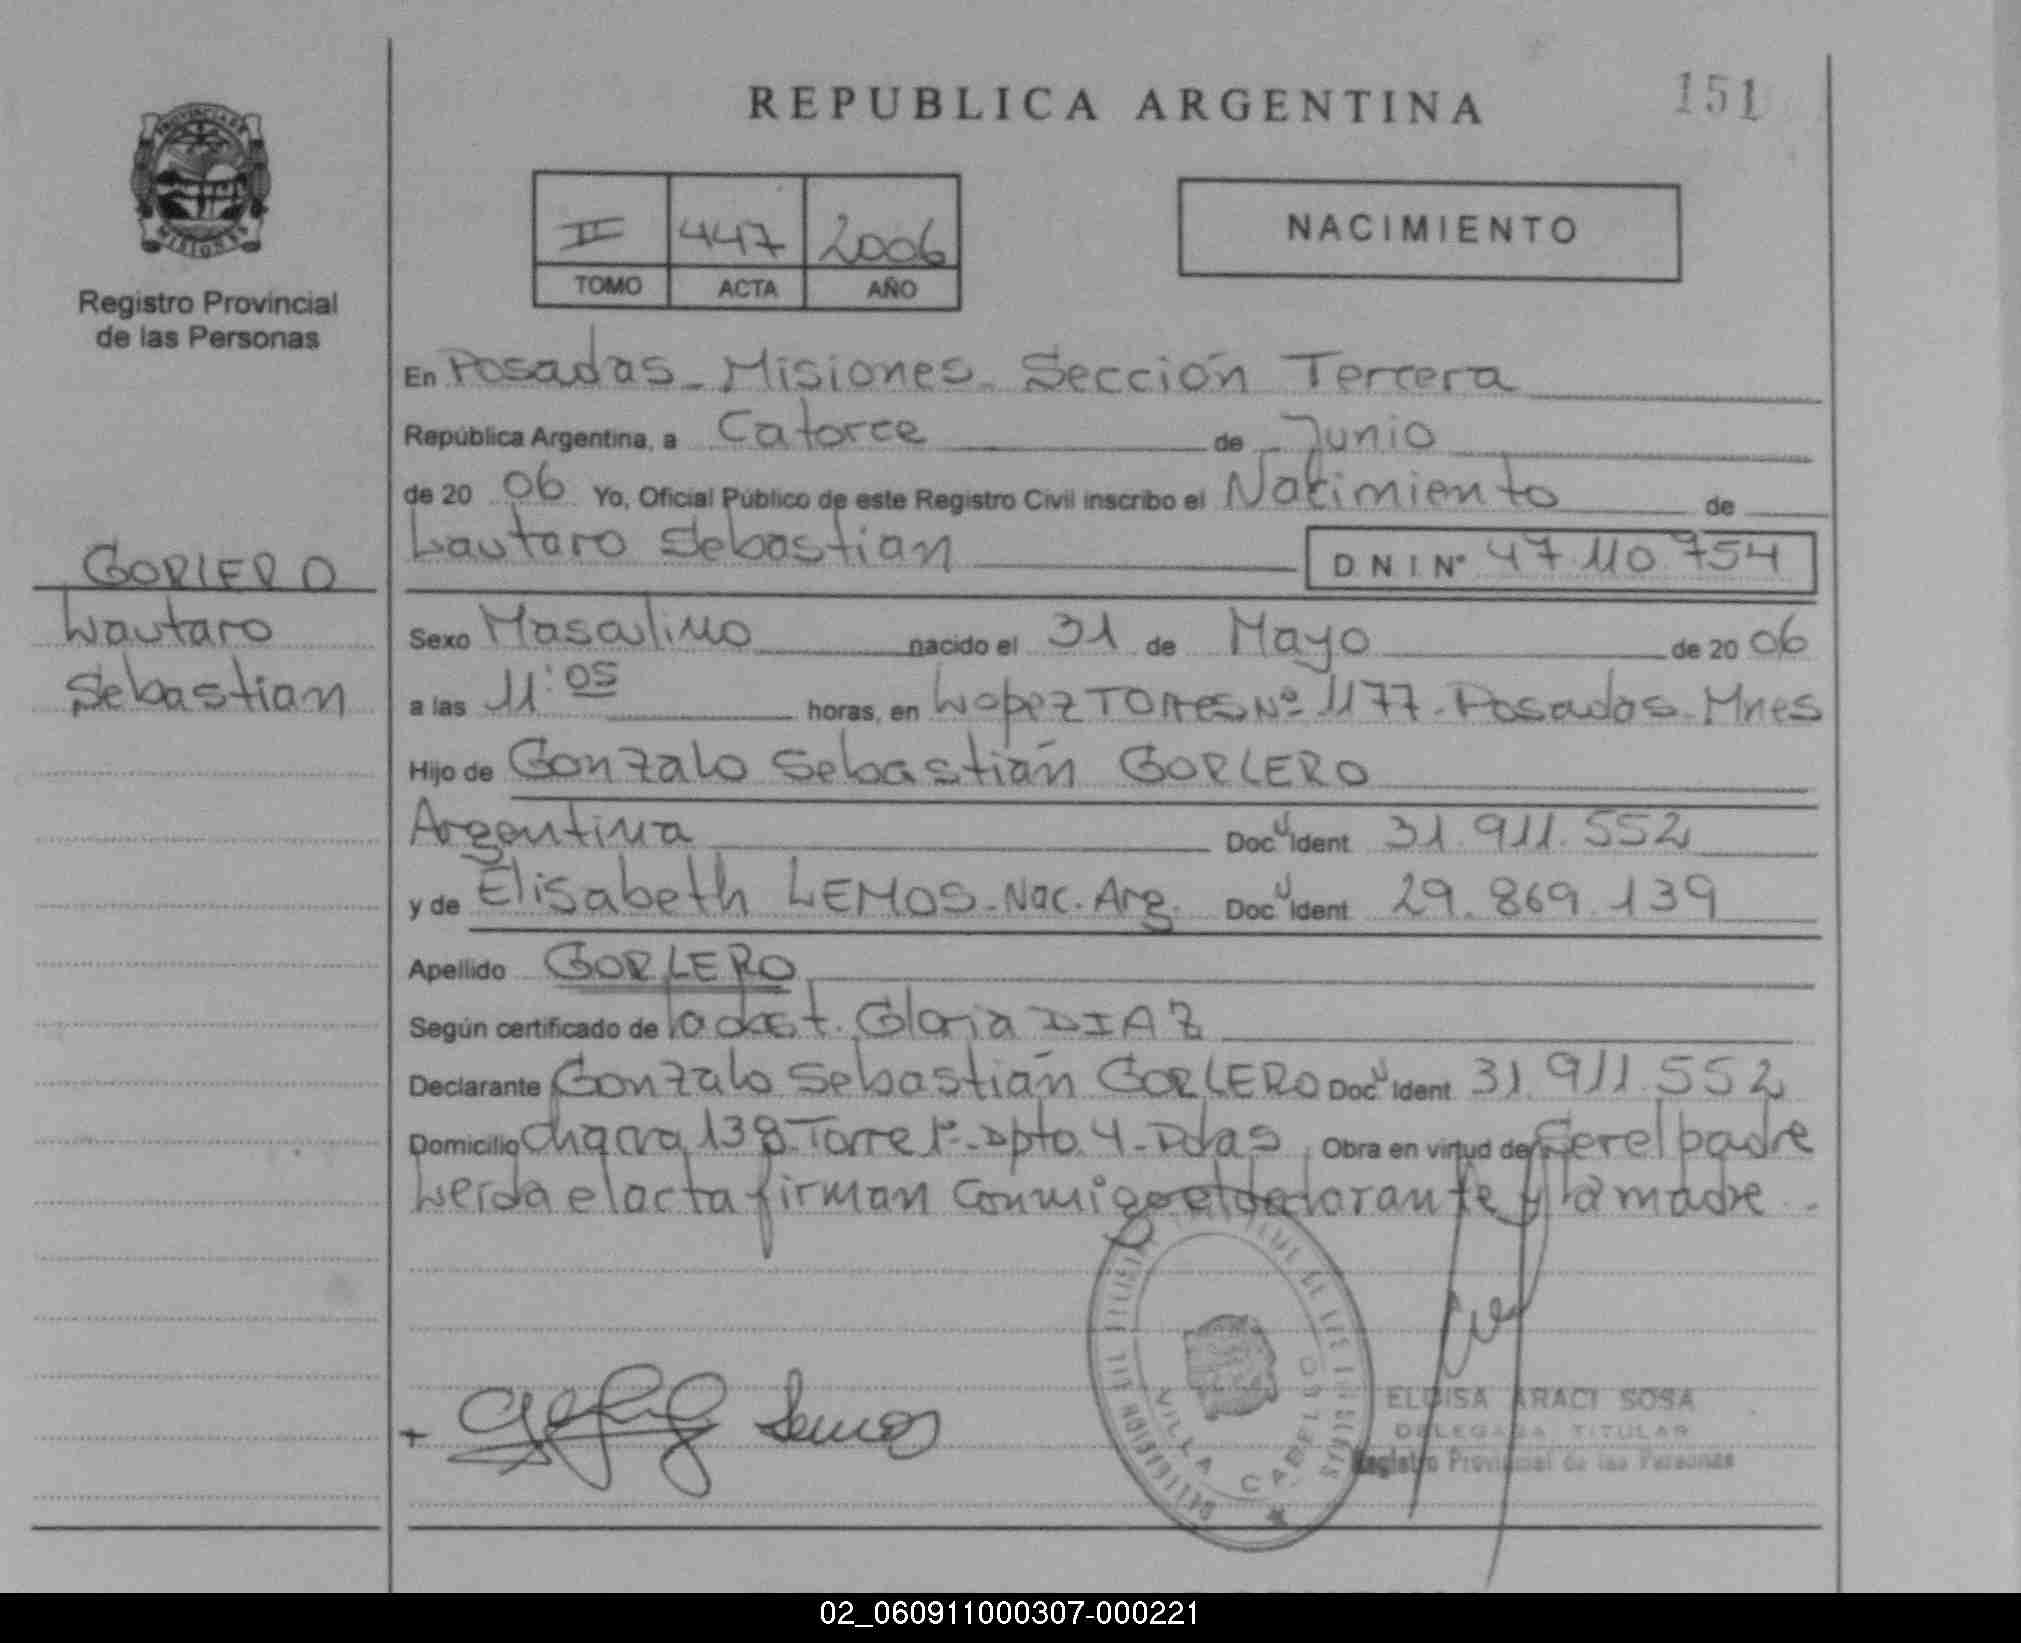 REPUBLICA ARGENTINA
151
PROVINCIA DE
MISIONES
Registro Provincial
de las Personas
II 447 2006
TOMO ACTA AÑO
NACIMIENTO
En Posadas - Misiones - Sección Tercera
República Argentina, a Catorce de Junio
de 20 06 Yo, Oficial Público de este Registro Civil inscribo el Nacimiento de
Lautaro Sebastian D N I Nº 47.110.754
GORLERO
Lautaro
Sebastian
Sexo Masculino nacido el 31 de Mayo de 20 06
a las 11:05 horas, en Lopez Torres Nº 1177 - Posadas - Mnes
Hijo de Gonzalo Sebastián GORLERO
Argentina Doc U Ident 31.911.552
y de Elisabeth LEMOS - Nac. Arg. Doc U Ident 29.869.139
Apellido GORLERO
Según certificado de la obst. Gloria DIAZ
Declarante Gonzalo Sebastián GORLERO Doc U Ident 31.911.552
Domicilio Chacra 138 - Torre 1º - Dpto 4 - Pdas Obra en virtud de Ser el padre
Leida el acta firman conmigo el declarante y la madre -
DELEGACION DEL REGISTRO DE LAS PERSONAS
VILLA CABELLO
Lemos
ELOISA ARACI SOSA
DELEGADA TITULAR
Registro Provincial de las Personas
02_060911000307-000221